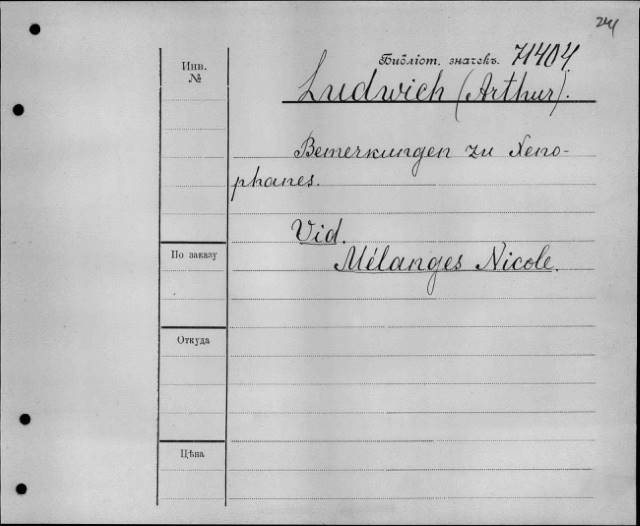 24
Библіот. значекъ. 71404
Инв.
№
Ludwich (Arthur).
Bemerkungen zu Xeno-
phanes.
Vid.
По заказу
Mélanges Nicole.
Откуда
Цѣна